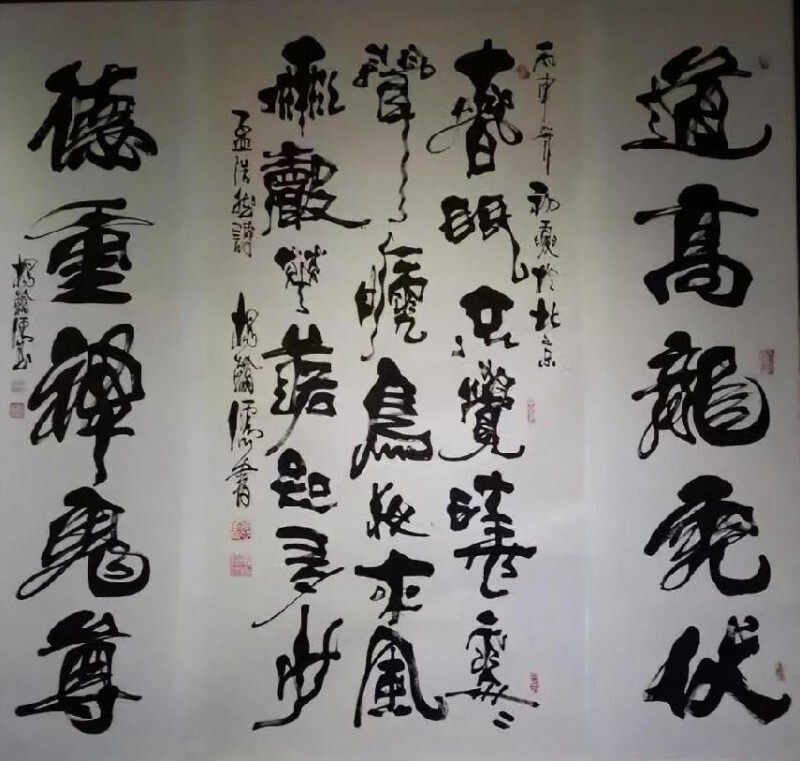 道高龍虎伏
丙申年初夏於北京
春眠不覺曉處〻
聞啼鳥夜來風
雨聲花落知多少
孟浩然詩 楊翰儒書
德重神鬼尊
楊翰儒書